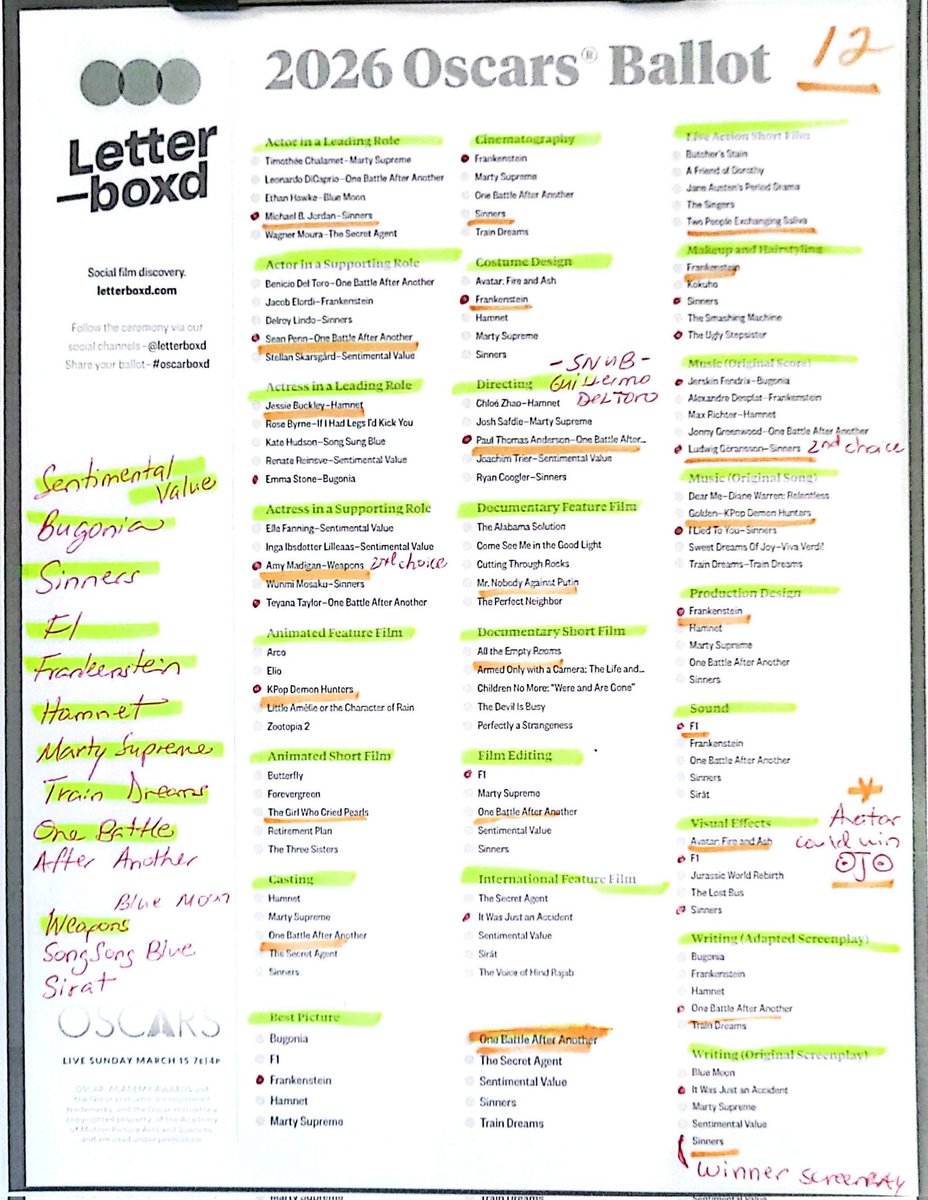 2026 Oscars® Ballot
12
Letter
—boxd
Social film discovery.
letterboxd.com
Follow the ceremony via our
social channels – @letterboxd
Share your ballot – #oscarboxd
Sentimental
Value
Bugonia
Sinners
F1
Frankenstein
Hamnet
Marty Supreme
Train Dreams
One Battle
After Another
Blue Moon
Weapons
SongSong Blue
Sirat
OSCARS
LIVE SUNDAY MARCH 15 7E|4P
Actor in a Leading Role
Timothée Chalamet–Marty Supreme
Leonardo DiCaprio–One Battle After Another
Ethan Hawke–Blue Moon
Michael B. Jordan–Sinners
Wagner Moura–The Secret Agent
Actor in a Supporting Role
Benicio Del Toro–One Battle After Another
Jacob Elordi–Frankenstein
Delroy Lindo–Sinners
Sean Penn–One Battle After Another
Stellan Skarsgård–Sentimental Value
Actress in a Leading Role
Jessie Buckley–Hamnet
Rose Byrne–If I Had Legs I'd Kick You
Kate Hudson–Song Sung Blue
Renate Reinsve–Sentimental Value
Emma Stone–Bugonia
Actress in a Supporting Role
Elle Fanning–Sentimental Value
Inga Ibsdotter Lilleaas–Sentimental Value
Amy Madigan–Weapons 2nd choice
Wunmi Mosaku–Sinners
Teyana Taylor–One Battle After Another
Animated Feature Film
Arco
Elio
KPop Demon Hunters
Little Amélie or the Character of Rain
Zootopia 2
Animated Short Film
Butterfly
Forevergreen
The Girl Who Cried Pearls
Retirement Plan
The Three Sisters
Casting
Hamnet
Marty Supreme
One Battle After Another
The Secret Agent
Sinners
Best Picture
Bugonia
F1
Frankenstein
Hamnet
Marty Supreme
One Battle After Another
The Secret Agent
Sentimental Value
Sinners
Train Dreams
Cinematography
Frankenstein
Marty Supreme
One Battle After Another
Sinners
Train Dreams
Costume Design
Avatar: Fire and Ash
Frankenstein
Hamnet
Marty Supreme
Sinners
Directing
- SNUB -
Guillermo
Del Toro
Chloé Zhao–Hamnet
Josh Safdie–Marty Supreme
Paul Thomas Anderson–One Battle After...
Joachim Trier–Sentimental Value
Ryan Coogler–Sinners
Documentary Feature Film
The Alabama Solution
Come See Me in the Good Light
Cutting Through Rocks
Mr. Nobody Against Putin
The Perfect Neighbor
Documentary Short Film
All the Empty Rooms
Armed Only with a Camera: The Life and...
Children No More: "Were and Are Gone"
The Devil Is Busy
Perfectly a Strangeness
Film Editing
F1
Marty Supreme
One Battle After Another
Sentimental Value
Sinners
International Feature Film
The Secret Agent
It Was Just an Accident
Sentimental Value
Sirāt
The Voice of Hind Rajab
Live Action Short Film
Butcher's Stain
A Friend of Dorothy
Jane Austen's Period Drama
The Singers
Two People Exchanging Saliva
Makeup and Hairstyling
Frankenstein
Kokuho
Sinners
The Smashing Machine
The Ugly Stepsister
Music (Original Score)
Jerskin Fendrix–Bugonia
Alexandre Desplat–Frankenstein
Max Richter–Hamnet
Jonny Greenwood–One Battle After Another
Ludwig Göransson–Sinners 2nd choice
Music (Original Song)
Dear Me–Diane Warren: Relentless
Golden–KPop Demon Hunters
I Lied To You–Sinners
Sweet Dreams Of Joy–Viva Verdi!
Train Dreams–Train Dreams
Production Design
Frankenstein
Hamnet
Marty Supreme
One Battle After Another
Sinners
Sound
F1
Frankenstein
One Battle After Another
Sinners
Sirāt
Visual Effects
Avatar: Fire and Ash
F1
Jurassic World Rebirth
The Lost Bus
Sinners
Avatar
could win
OJO
Writing (Adapted Screenplay)
Bugonia
Frankenstein
Hamnet
One Battle After Another
Train Dreams
Writing (Original Screenplay)
Blue Moon
It Was Just an Accident
Marty Supreme
Sentimental Value
Sinners
Winner ScreenPlay